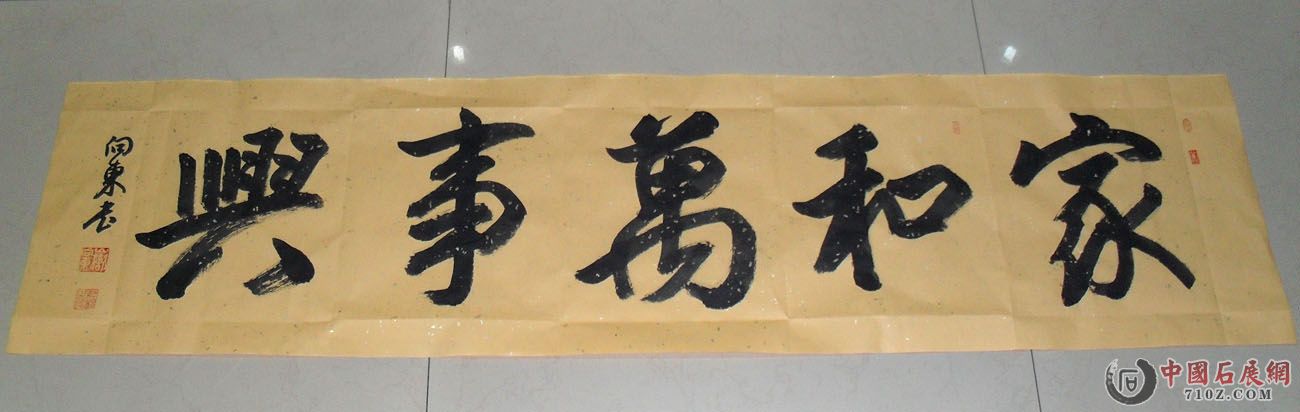 家和萬事興
向東书
中國石展網
710Z.COM